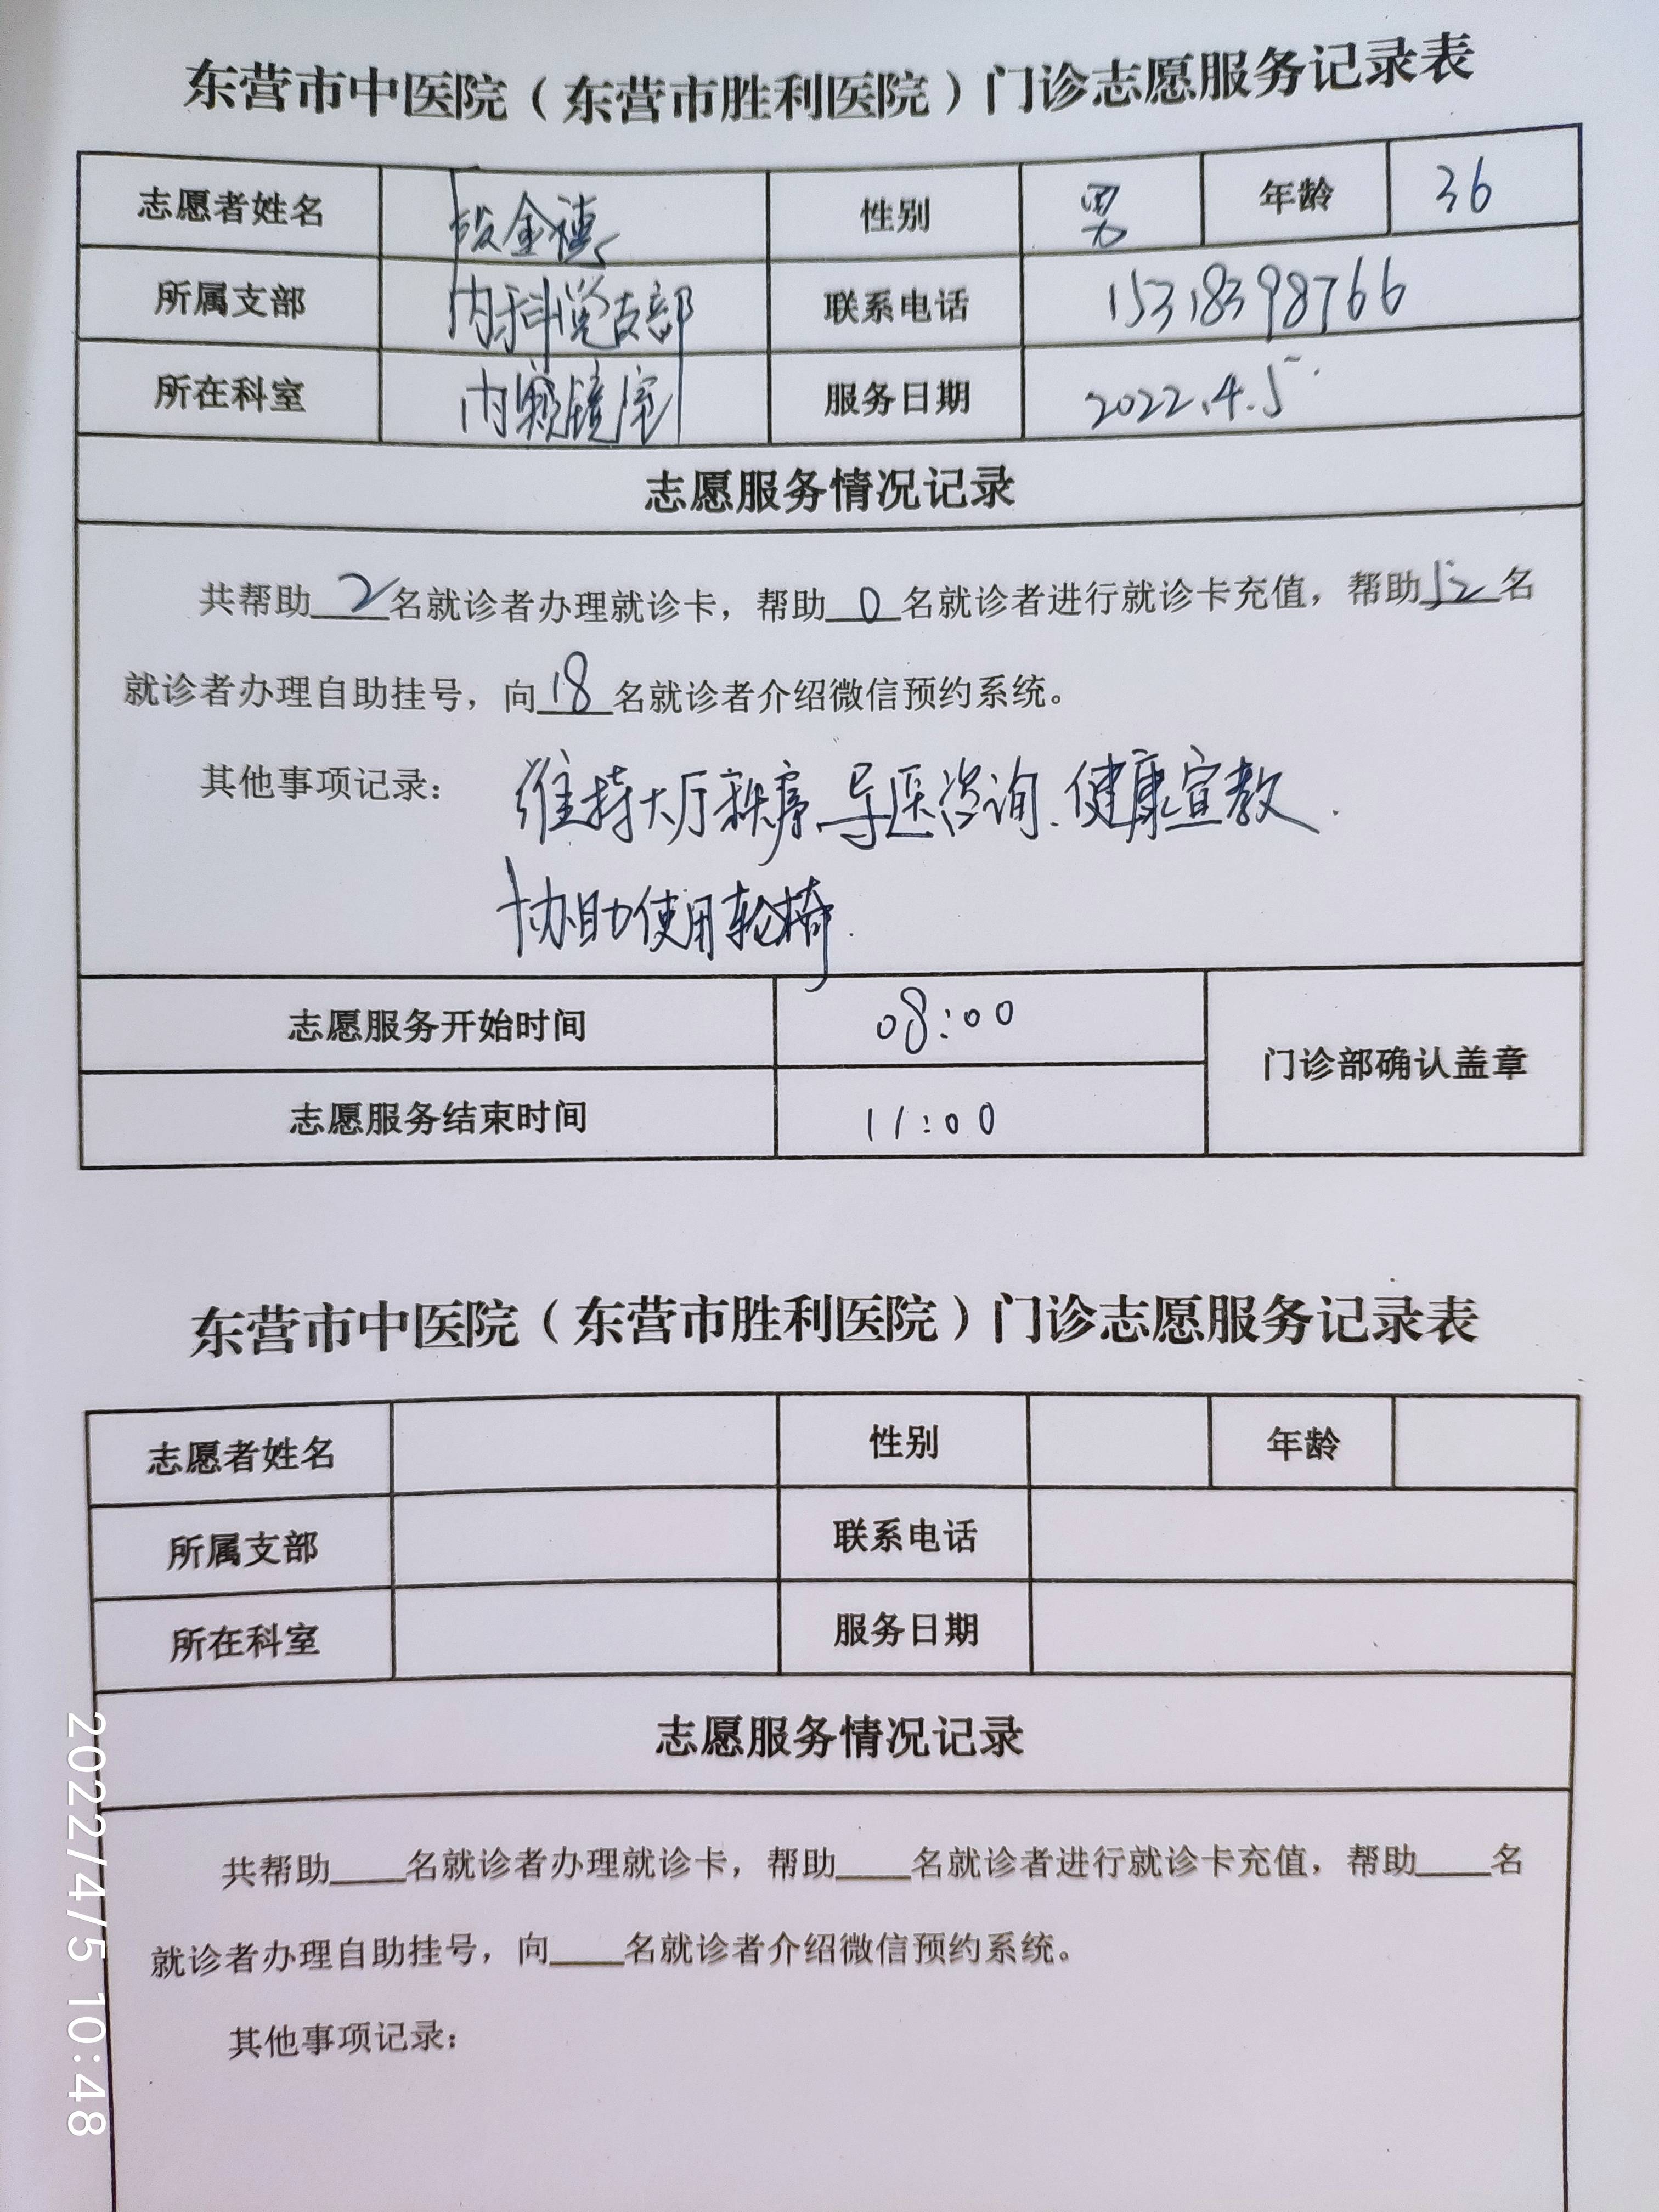 东营市中医院（东营市胜利医院）门诊志愿服务记录表
志愿者姓名 段金德 性别 男 年龄 36
所属支部 内科党支部 联系电话 15318398766
所在科室 内窥镜室 服务日期 2022.4.5
志愿服务情况记录
共帮助2名就诊者办理就诊卡，帮助0名就诊者进行就诊卡充值，帮助52名
就诊者办理自助挂号，向18名就诊者介绍微信预约系统。
其他事项记录：维持大厅秩序、导医咨询、健康宣教.
协助使用轮椅.
志愿服务开始时间 08:00
门诊部确认盖章
志愿服务结束时间 11:00
东营市中医院（东营市胜利医院）门诊志愿服务记录表
志愿者姓名 性别 年龄
所属支部 联系电话
所在科室 服务日期
志愿服务情况记录
共帮助____名就诊者办理就诊卡，帮助____名就诊者进行就诊卡充值，帮助____名
就诊者办理自助挂号，向____名就诊者介绍微信预约系统。
其他事项记录：
2022/4/5 10:48